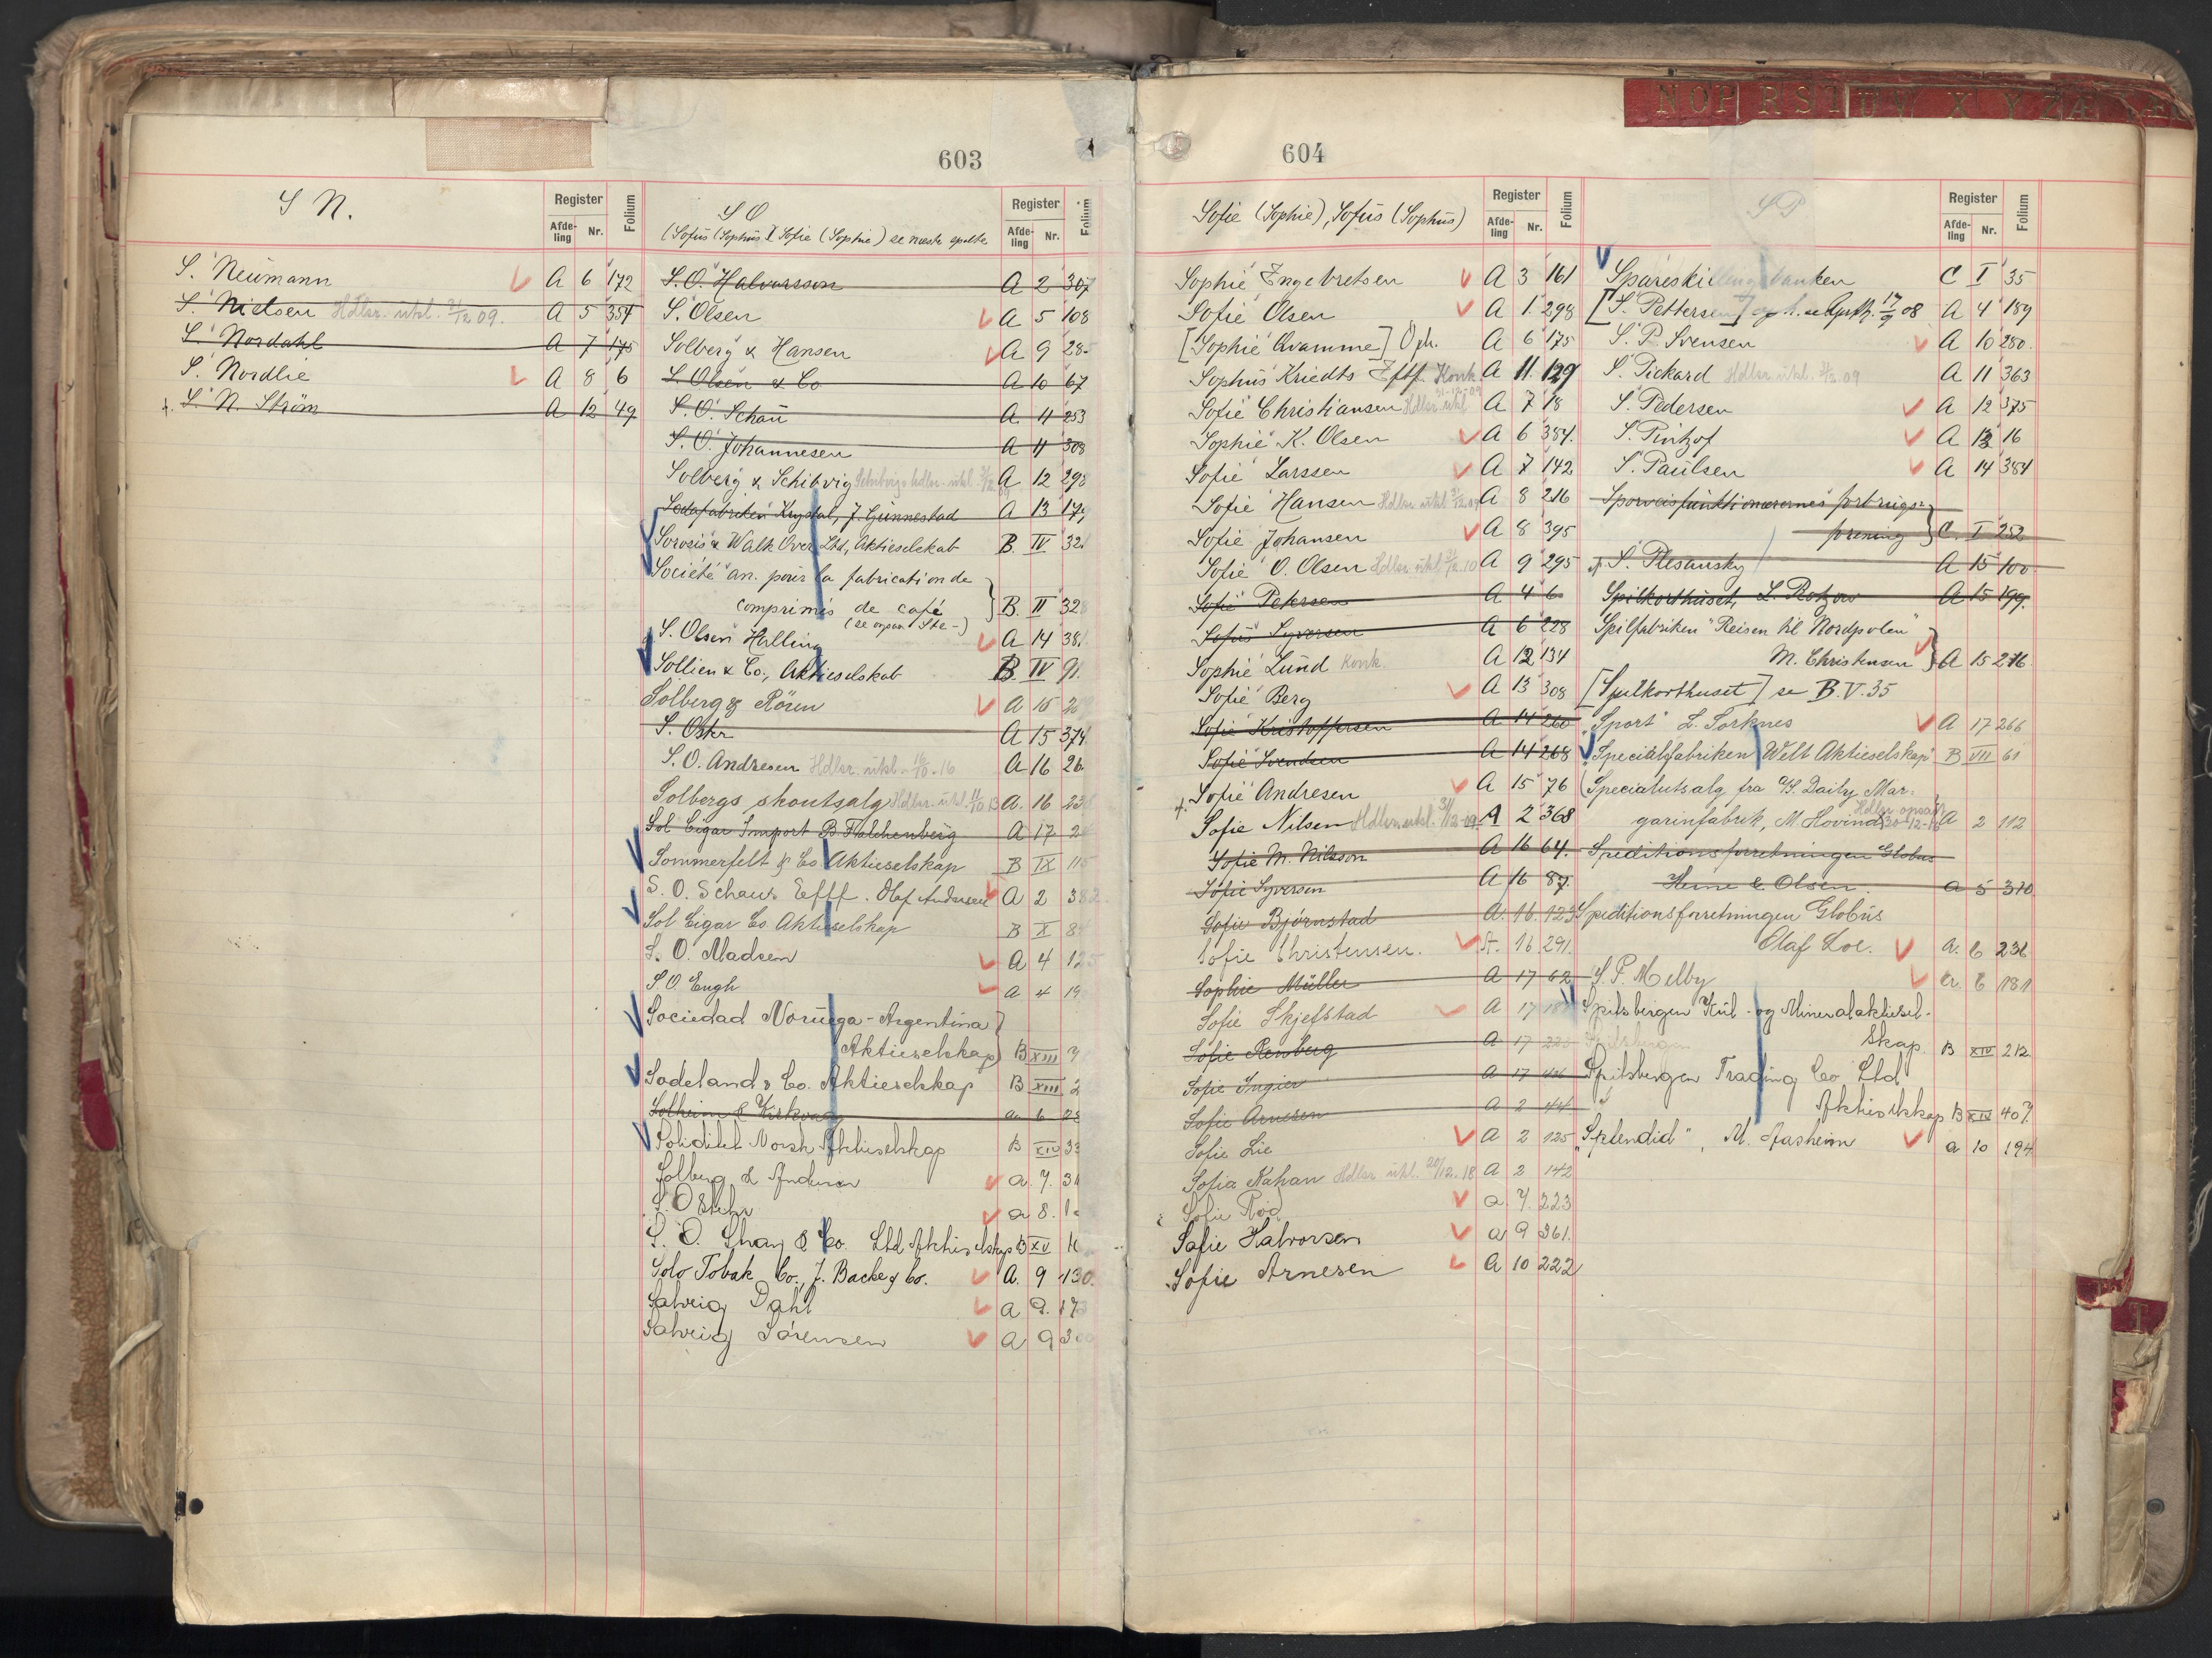 603
S N.
Register
Afde-
ling
Nr.
Folium
S. Neumann A 6 172
S. Nielsen Hdlsr. utsl. 31/12 09. A 5 354
S. Nordahl A 7 175
S. Nordlie A 8 6
S. N. Strøm A 12 49
S O
(Sofus (Sophus) & Sofie (Sophie) se næste spalte
Register
Afde-
ling
Nr.
Folium
S. O. Halvorssen A 2 307
S. Olsen A 5 108
Solberg & Hansen A 9 28
S. Olsen & Co A 10 67
S. O. Schau A. 11 253
S. O. Johannesen A 11 308
Solberg & Schibvig A 12 298
Sodafabriken Krystal, J. Gunnestad A 13 17
Sorosis & Walk Over Ltd, Aktieselskab B. IV 32
Societé an. pour la fabrication de
comprimés de café B. II 32
S. Olsen Halling A 14 38
Sollien & Co., Aktieselskab B. IV 9
Solberg & Rören A 15 2
S. Oskr A 15 374
S. O. Andresen Hdlsr. utsl. 16/10.16 A 16 26
Solbergs skoutsalg Hdlsr. utsl. A. 16 23
Sol Cigar Import B Falchenberg A 17 2
Sommerfelt & Co Aktieselskap B IX 115
S. O. Schaus Efff. Olaf Andersen A 2 382
Sol Cigar Co. Aktieselskap B X 8
S. O. Madsen A 4 125
S. O. Engh A 4 19
Sociedad Noruega-Argentina
Aktieselskap B XIII
Sodeland & Co. Aktieselskap B XIII 2
Solheim & Kirkvaag a 6 25
Soliditet Norsk Aktieselskap B XIV 33
Solberg & Andersen a. 7. 31
S. O. a 8. 1
S. O. & Co. Ltd Aktieselskap B XV 1
Solo Tobak Co., J. Backe & Co. A. 9 130.
Solveig Dahl a 9. 173
Solveig Sørensen a 9 3
604
N O P R S T U V X Y Z Æ
Sofie (Sophie), Sofus (Sophus)
Register
Afde-
ling
Nr.
Folium
Sophie Engebretsen A 3 161
Sofie Olsen A 1. 298
[Sophie Qvamme] Oph. A 6 175
Sophus Kriedts Eftf. Konk. A 11. 129
Sofie Christiansen Hdlsr. utsl. 31-12-09 A 7 18
Sophie K. Olsen A 6 384.
Sofie Larssen A 7 142
Sofie Hansen Hdlsr. utsl. A 8 216
Sofie Johansen A 8 395
Sofie O. Olsen Hdlsr. utsl. 31/12.10 A 9 295
Sofie Petersen A 4 6
Sofus Syversen A 6 228
Sophie Lund Konk. A 12 134
Sofie Berg A 13 308
Sofie Kristoffersen A 14 260
Sofie Svendsen A 14 268
Sofie Andresen A 15 76
Sofie Nilsen Hdlsr. utsl. 31/12-09 A 2 368
Sofie M. Nilsson A 16 64.
Sofie Syversen A 16 87.
Sofie Björnstad A. 16. 123
Sofie Christensen. A. 16 291.
Sophie Müller A 17 62
Sofie Skjefstad A 17
Sofie Renberg A 17
Sofie Ingier A 17
Sofie Arnesen A 2 44
Sofie Lie A 2 125
Sofia Kahan Hdlsr. utsl. 20/12.18 A 2 142
Sofie Rød a 7. 223
Sofie Halvorsen a 9 361.
Sofie Arnesen A 10 222
S P
Register
Afde-
ling
Nr.
Folium
Spareskillingsbanken C I 35
[S. Pettersen] 17/9 08 A 4 189
S. P. Svensen A 10 280.
S. Pickard Hdlsr. utsl. 31/12.09 A 11 363
S. Pedersen A 12 375
S. Pintzof A 13 16
S. Paulsen A 14 384
Sporveisfunktionærernes forbrugs-
forening C. I 252
S. Plesansky A 15 100
Spilkorthuset, L. Rotzow A 15 199.
Spilfabriken "Reisen til Nordpolen"
M. Christensen A 15 276.
[Spilkorthuset] se B. V. 35
"Sport" L. Sorknes A 17 266
Specialfabriken Welt Aktieselskap B VII 61
Specialutsalg fra A/S. Daily Mar-
garinfabrik, M. Hovind A 2 112
Speditionsforretningen Globus
Herne & Olsen. a 5 370
Speditionsforretningen Globus
Olaf Loe. a. 6 236
S. P. Melby a. 6 181
Spitsbergen Kul- og Mineralaktiesel-
skap. B XIV 212
Spitsbergen Trading Co Ltd
Aktieselskap B XIV 407
"Splendid", M. Aasheim a 10 194
T